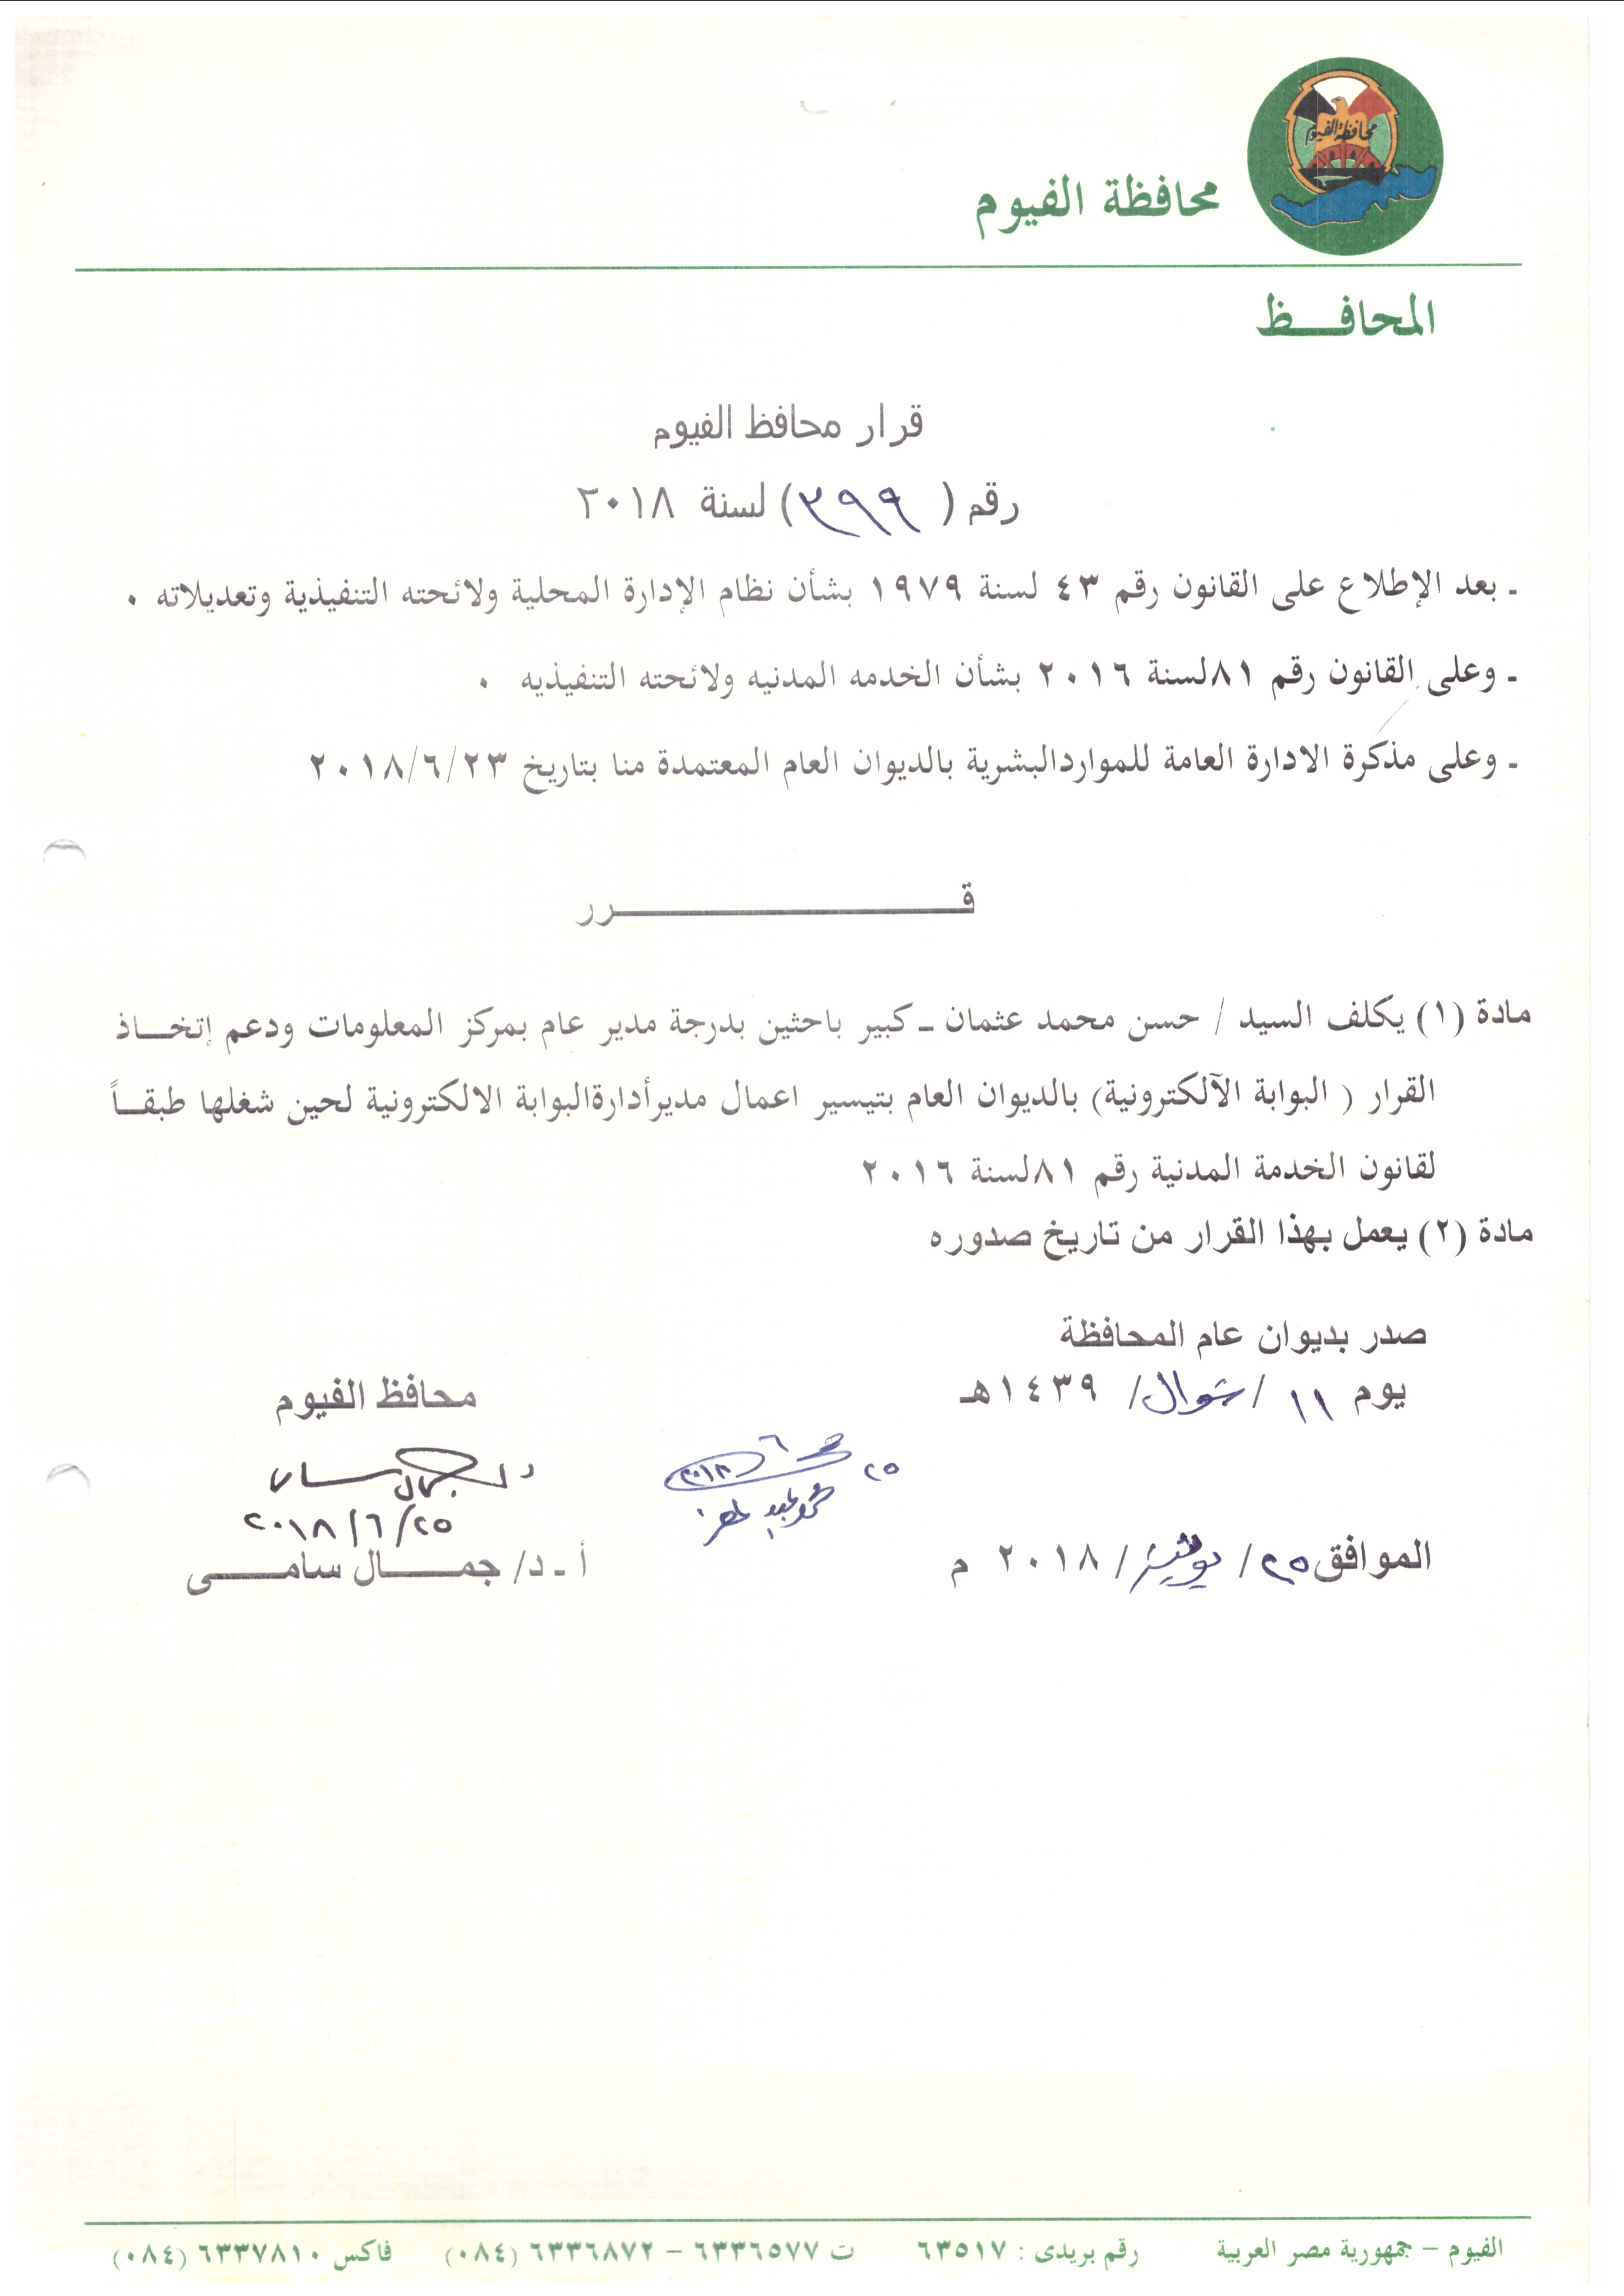 محافظة الفيوم
محافظة الفيوم
المحافــــظ
قرار محافظ الفيوم
رقم ( ٣٩٩ ) لسنة ٢٠١٨
ـ بعد الإطلاع على القانون رقم ٤٣ لسنة ١٩٧٩ بشأن نظام الإدارة المحلية ولائحته التنفيذية وتعديلاته ٠
ـ وعلى القانون رقم ٨١لسنة ٢٠١٦ بشأن الخدمه المدنيه ولائحته التنفيذيه ٠
ـ وعلى مذكرة الادارة العامة للمواردالبشرية بالديوان العام المعتمدة منا بتاريخ ٢٠١٨/٦/٢٣
قـــــــــــــــرر
مادة (١) يكلف السيد / حسن محمد عثمان ـ كبير باحثين بدرجة مدير عام بمركز المعلومات ودعم إتخـــاذ
القرار ( البوابة الآلكترونية) بالديوان العام بتيسير اعمال مديرأدارةالبوابة الالكترونية لحين شغلها طبقــاً
لقانون الخدمة المدنية رقم ٨١لسنة ٢٠١٦
مادة (٢) يعمل بهذا القرار من تاريخ صدوره
صدر بديوان عام المحافظة
يوم ١١ / شوال / ١٤٣٩هـ
محافظ الفيوم
٢٥ ٦ ٢٠١٨
٢٠١٨/٦/٢٥
الموافق ٢٥ / يونيو / ٢٠١٨ م
أ ـ د/ جمـــــال سامـــــى
الفيوم – جمهورية مصر العربية رقم بريدى : ٦٣٥١٧ ت ٦٣٣٦٥٧٧ – ٦٣٣٦٨٧٢ (٠٨٤) فاكس ٦٣٣٧٨١٠ (٠٨٤)